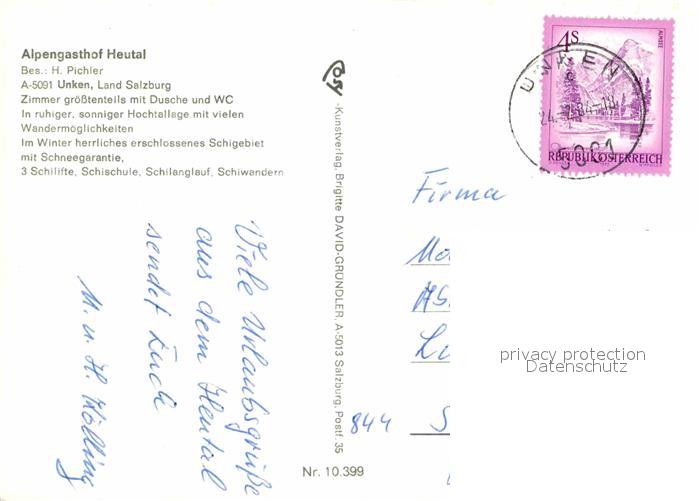 Alpengasthof Heutal
Bes.: H. Pichler
A-5091 Unken, Land Salzburg
Zimmer größtenteils mit Dusche und WC
In ruhiger, sonniger Hochtallage mit vielen
Wandermöglichkeiten
Im Winter herrliches erschlossenes Schigebiet
mit Schneegarantie,
3 Schilifte, Schischule, Schilanglauf, Schiwandern
Viele Urlaubsgrüße
aus dem Heutal
sendet Euch
M. u. H. Kölling
Kunstverlag, Brigitte DAVID-GRÜNDLER, A-5013 Salzburg, Postf. 35
Nr. 10.399
4 S
ALMSEE
REPUBLIK ÖSTERREICH
UNKEN
5091
Firma
844
privacy protection
Datenschutz